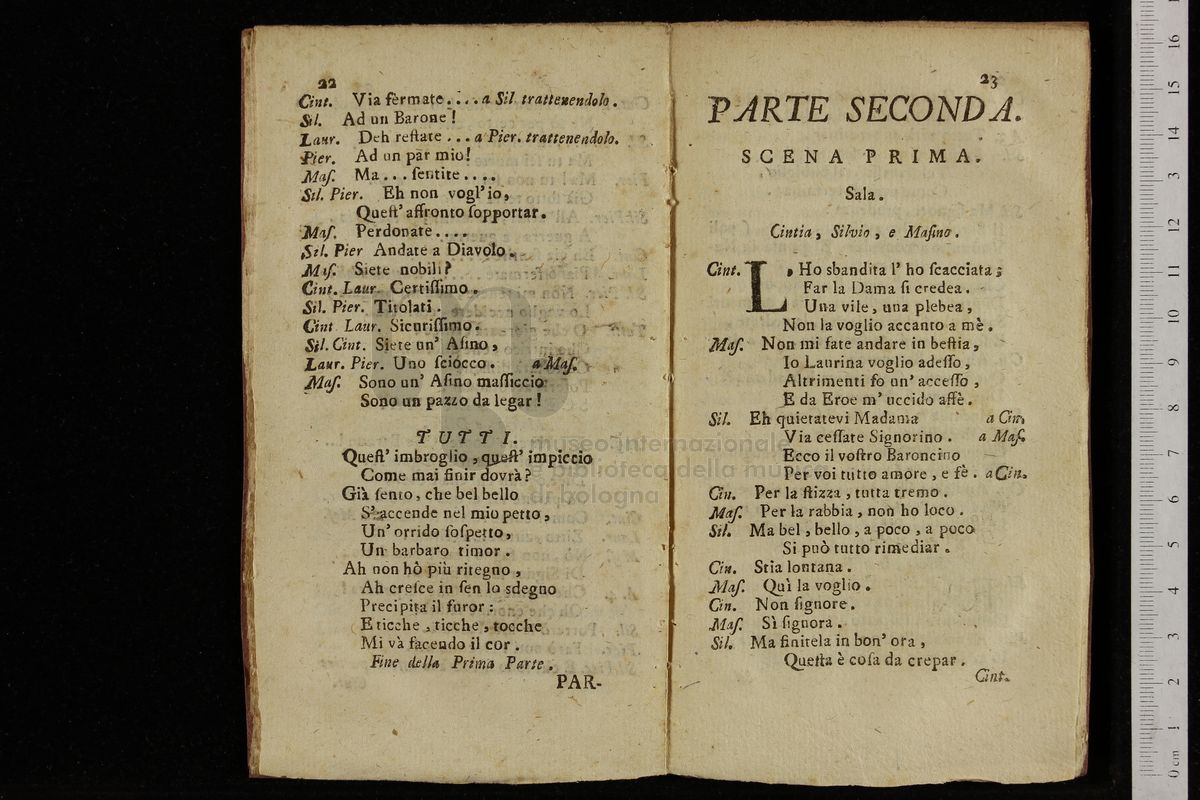 22
Cint. Via fermate.... a Sil trattenendolo.
Sil. Ad un Barone!
Laur. Deh reſtate ... a Pier. trattenendolo.
Pier. Ad un par mio!
Maſ. Ma... ſentite....
Sil. Pier. Eh non vogl' io,
Queſt' affronto ſopportar.
Maſ. Perdonate....
Sil. Pier Andate a Diavolo.
Maſ. Siete nobili?
Cint. Laur. Certiſſimo.
Sil. Pier. Titolati.
Cint Laur. Sicuriſſimo.
Sil. Cint. Siete un' Aſino,
Laur. Pier. Uno ſciocco. a Maſ.
Maſ. Sono un' Aſino maſſiccio
Sono un pazzo da legar!
TUTTI.
Queſt' imbroglio, queſt' impiccio
Come mai finir dovrà?
Già ſento, che bel bello
S' accende nel mio petto,
Un' orrido ſoſpetto,
Un barbaro timor.
Ah non hò più ritegno,
Ah creſce in ſen lo sdegno
Precipita il furor:
E ticche, ticche, tocche
Mi và facendo il cor.
Fine della Prima Parte.
PAR-
23
PARTE SECONDA.
SCENA PRIMA.
Sala.
Cintia, Silvio, e Maſino.
Cint. L' Ho sbandita l' ho ſcacciata;
Far la Dama ſi credea.
Una vile, una plebea,
Non la voglio accanto a mè.
Maſ. Non mi fate andare in beſtia,
Io Laurina voglio adeſſo,
Altrimenti fo un' acceſſo,
E da Eroe m' uccido affè.
Sil. Eh quietatevi Madama a Cin,
Via ceſſate Signorino. a Maſ.
Ecco il voſtro Baroncino
Per voi tutto amore, e fè. a Cin.
Cin. Per la ſtizza, tutta tremo.
Maſ. Per la rabbia, non ho loco.
Sil. Ma bel, bello, a poco, a poco
Si può tutto rimediar.
Cin. Stia lontana.
Maſ. Quì la voglio.
Cin. Non ſignore.
Maſ. Sì ſignora.
Sil. Ma finitela in bon' ora,
Queſta è coſa da crepar.
Cint.
museo internazionale
e biblioteca della musica
di bologna
0 cm 1 2 3 4 5 6 7 8 9 10 11 12 3 14 15 16